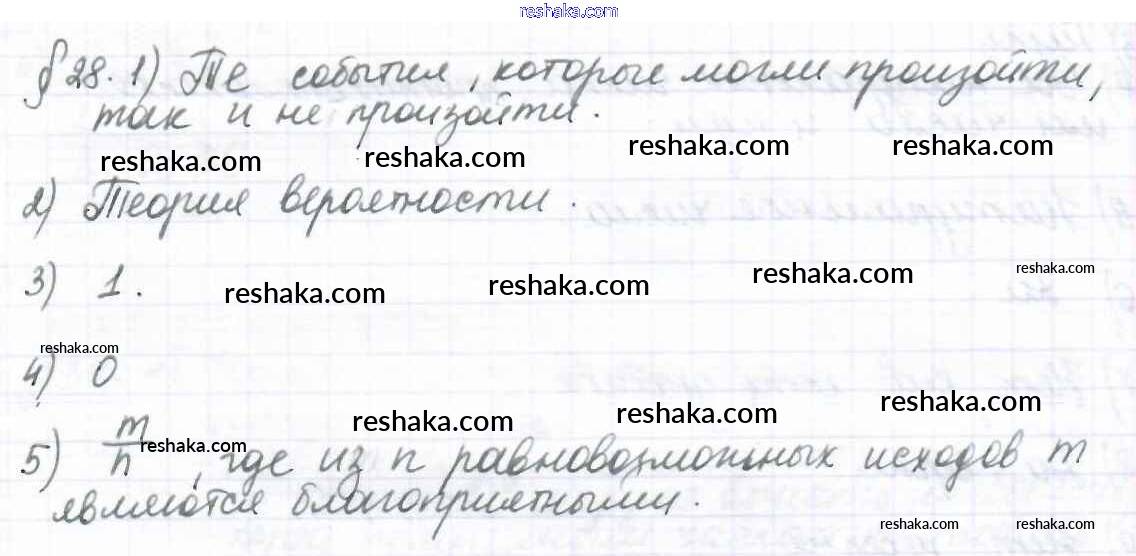 reshaka.com
§ 28. 1) Те события, которые могли произойти,
так и не произойти.
reshaka.com reshaka.com reshaka.com reshaka.com
2) Теория вероятности.
3) 1. reshaka.com reshaka.com reshaka.com reshaka.com
reshaka.com
4) 0
reshaka.com reshaka.com reshaka.com
5) m/n reshaka.com, где из n равновозможных исходов m
являются благоприятными.
reshaka.com reshaka.com